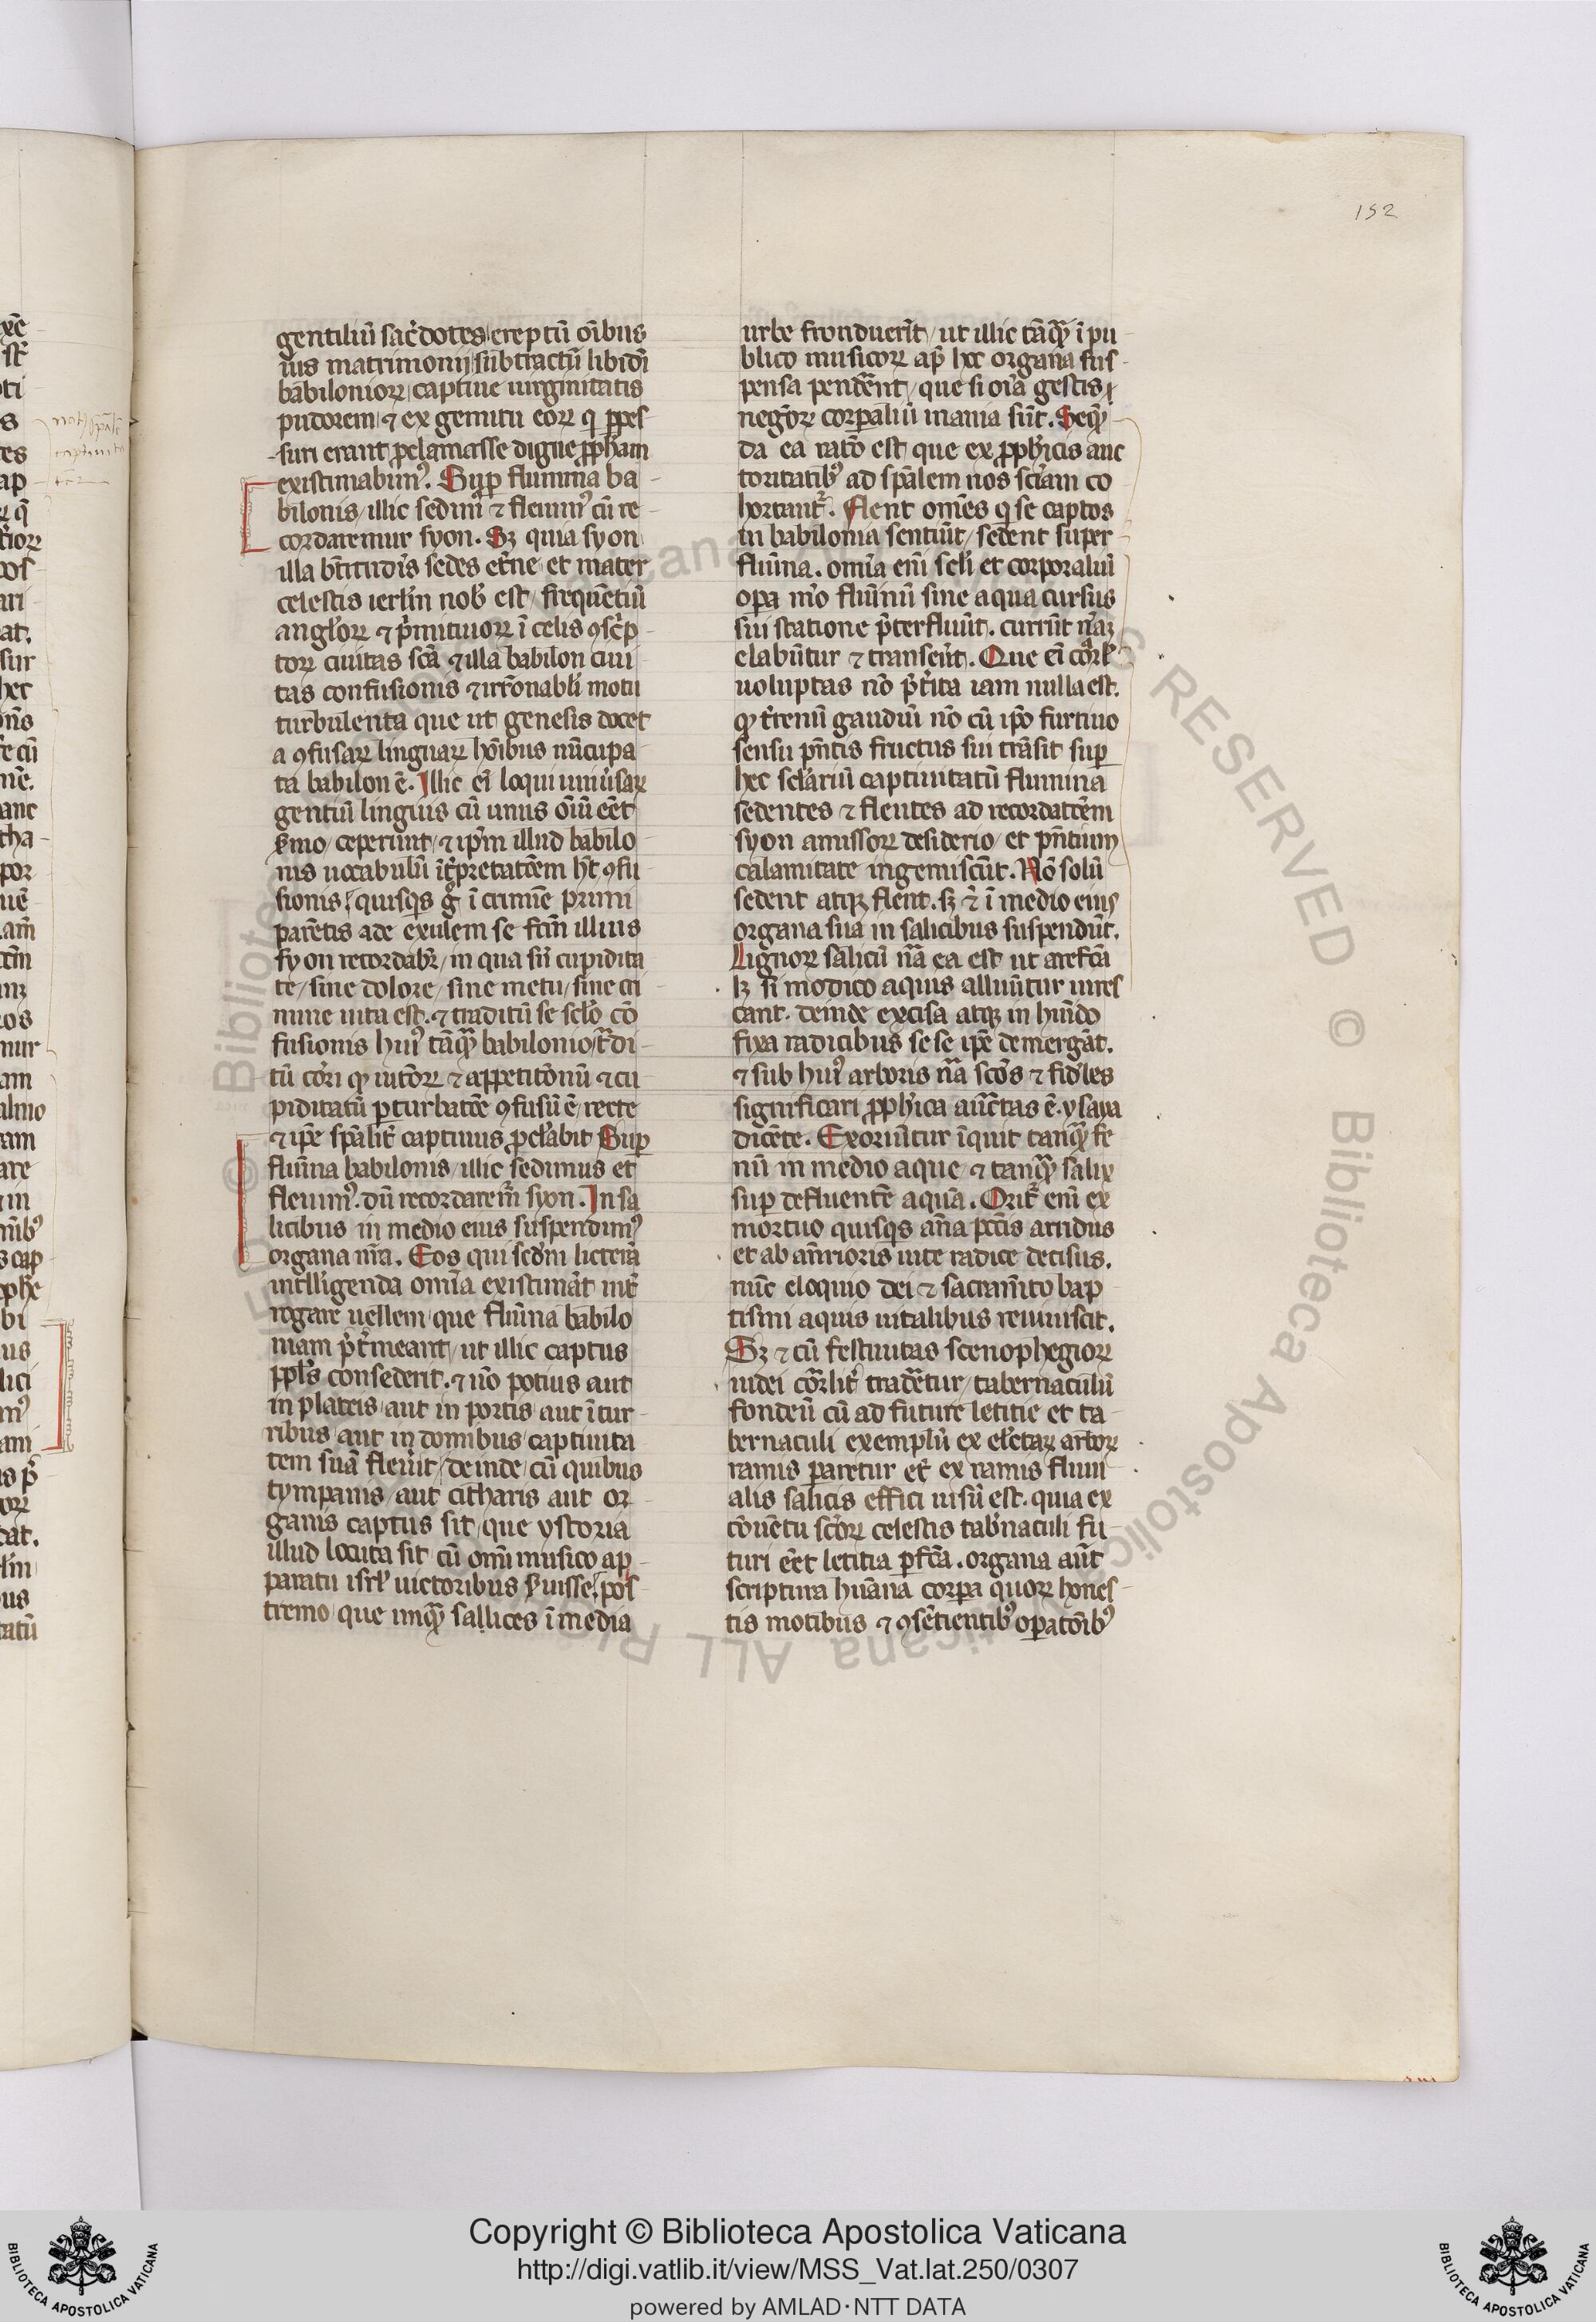 152
gentiliū sac̄dotes ereptū oībus
ius matrimonij subtractū libidī
babilonioꝝ captiue uirginitatis
pudorem ⁊ ex gemitu eoꝝ q̇ ꝑpes
suri erant ꝓclamasse digne ꝓph̄am
existimabimꝰ. Suꝑ flumina ba
bilonis illic sedimꝰ ⁊ fleuimꝰ cū re
cordaremur syon. Sꝫ quia syon
illa bt̄itudīs sedes et̄ne et mater
celestis ierlm̄ nob̄ est frequētiū
angl̄oꝝ ⁊ p̄mitiuoꝝ ī celis ꝯsc̄p
toꝝ ciuitas sc̄a ⁊ illa babilon ciui
tas confusionis ⁊ irrōnabli motu
turbulenta que ut genesis docet
a ꝯfusaꝝ linguaꝝ hoībus nūcupa
ta babilon ē. Illic eī loqui uniūsaꝝ
gentiū linguis cū unus oīū eēt
s̄mo ceperunt ⁊ ip̄m illud babilo
nis uocabulū īt̄pretatōem hȝ ꝯfu
sionis quisqs gͦ ī crimīe primi
parētis ade exulem se fcm̄ illius
syon recordabr̄ in qua sn̄ cupidita
te sine dolore sine metu sine cri
mine uita est. ⁊ traditū se scl̄o cō
fusionis huiꝰ tāqͣꝫ babilonio t̄di
tū cōri qꝫ uitōꝝ ⁊ appetitōnū ⁊ cu
piditatū ꝑturbatōe ꝯfusū ē recte
⁊ ip̄e spālit̄ captiuus ꝓclābit Suꝑ
flūina babilonis illic sedimus et
fleuimꝰ. dū recordarem̄ syon. In sa
licibus in medio eius suspendimꝰ
organa nr̄a. Eos qui sed̄m licterā
intlligenda omīa existimāt int̄
rogare uellem que flūina babilo
niam p̄t̄meant ut illic captus
ppl̄s consederit. ⁊ nō potius aut
in plateis aut in portis aut ī tur
ribus aut in domibus captiuita
tem suā fleuit deinde cū quibus
tympanis aut citharis aut or
ganis captus sit que ystoria
illud locuta sit cū omī musico ap
paratu isrl̄ uictoribus s̄uisse. pos
tremo que unqͣꝫ sallices ī media
urbe fronduerīt ut illic tāqͣꝫ ī pu
blico musicoꝝ ap̄ hec organa sus
pensa pend̄ent que si oīa gestis
negōꝝ corpāliū inania sūt. Seqͣꝫ
da ea ratō est que ex ꝓph̄icis auc
toritatibꝰ ad spālem nos sciām co
hortant̄. Flent omēs q̇ se captos
in babilonia sentiūt sedent super
flūina. omīa enī scl̄i et corporaliū
oꝑa mō flūinū sine aqua cursus
sui statione p̄terfluūt. currūt
elabūtur ⁊ transeūt. Que eī
uoluptas nō p̄t̄ita iam nulla est.
qꝫ t̄renū gaudiū nō cū ip̄o furtiuo
sensu p̄ntis fructus sui trāsit suꝑ
hec sclāriū captiuitatū flumina
sedentes ⁊ flentes ad recordatōem
syon amissoꝝ desiderio et p̄ntium
calamitate ingemiscūt. Nō solū
sedent atqꝫ flent. sꝫ ⁊ ī medio eius
organa sua in salicibus suspendūt.
Lignoꝝ salicū nā ea est ut arefcā
lꝫ si modico aquis alluūtur uires
cant. deinde excisa atqꝫ in humido
fixa radicibus se se ip̄e demergāt.
⁊ sub huiꝰ arboris nā scōs ⁊ fidles
significari ꝓph̄ica auctas ē. ysaya
dicēte. Exoriūtur īquit tanqͣꝫ fe
nū in medio aque ⁊ tanqͣꝫ salix
suꝑ defluentē aquā. Orit̄ enī ex
mortuo quisqs aīa pctīs aridus
et ab antioris uite radice decisus.
nūc eloquio dei ⁊ sacramīto bap
tismi aquis uitalibus reuiuiscit.
Sꝫ ⁊ cū festiuitas scenophegioꝝ
iudei corlit̄ tradētur tabernaculū
fondeū cū ad future letitie et ta
bernaculi exemplū ex elc̄taꝝ arboꝝ
ramis pararetur et ex ramis fluui
alis salicis effici iusū est. quia ex
cōuētu scōꝝ celestis tab̄naculi fu
turi eēt letitia ꝑfcā. organa aūt
scriptura humāna corꝑa quoꝝ hones
tis motibus ⁊ ꝯsētientibꝰ oꝑatōibꝰ
Copyright © Biblioteca Apostolica Vaticana
http://digi.vatlib.it/view/MSS_Vat.lat.250/0307
powered by AMLAD·NTT DATA
BIBLIOTECA APOSTOLICA VATICANA
BIBLIOTECA APOSTOLICA VATICANA